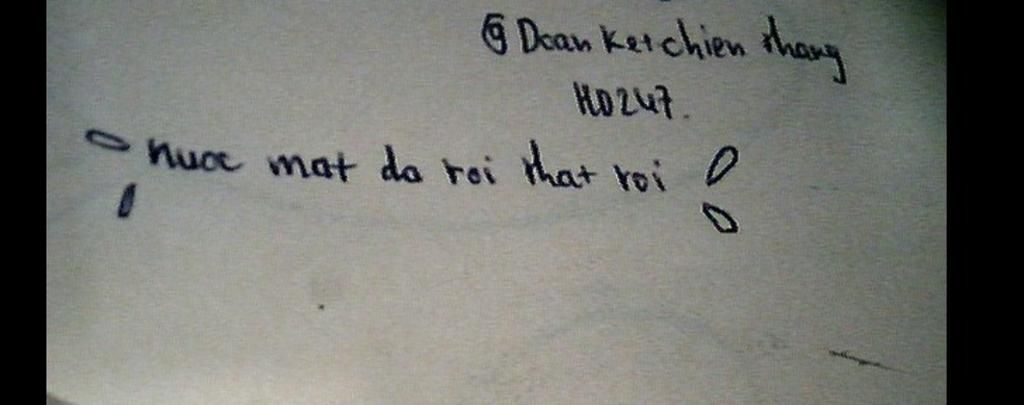 @ Doan ket chien thang
HD247.
nuoc mat da roi that roi !